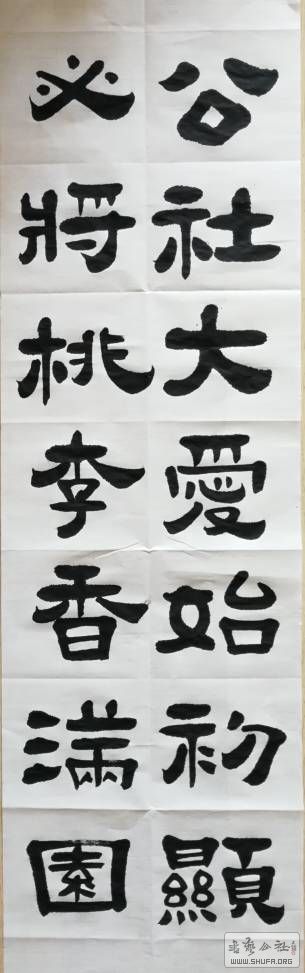 公社大愛始初顯
必將桃李香滿園
書藝公社
WWW.SHUFA.ORG